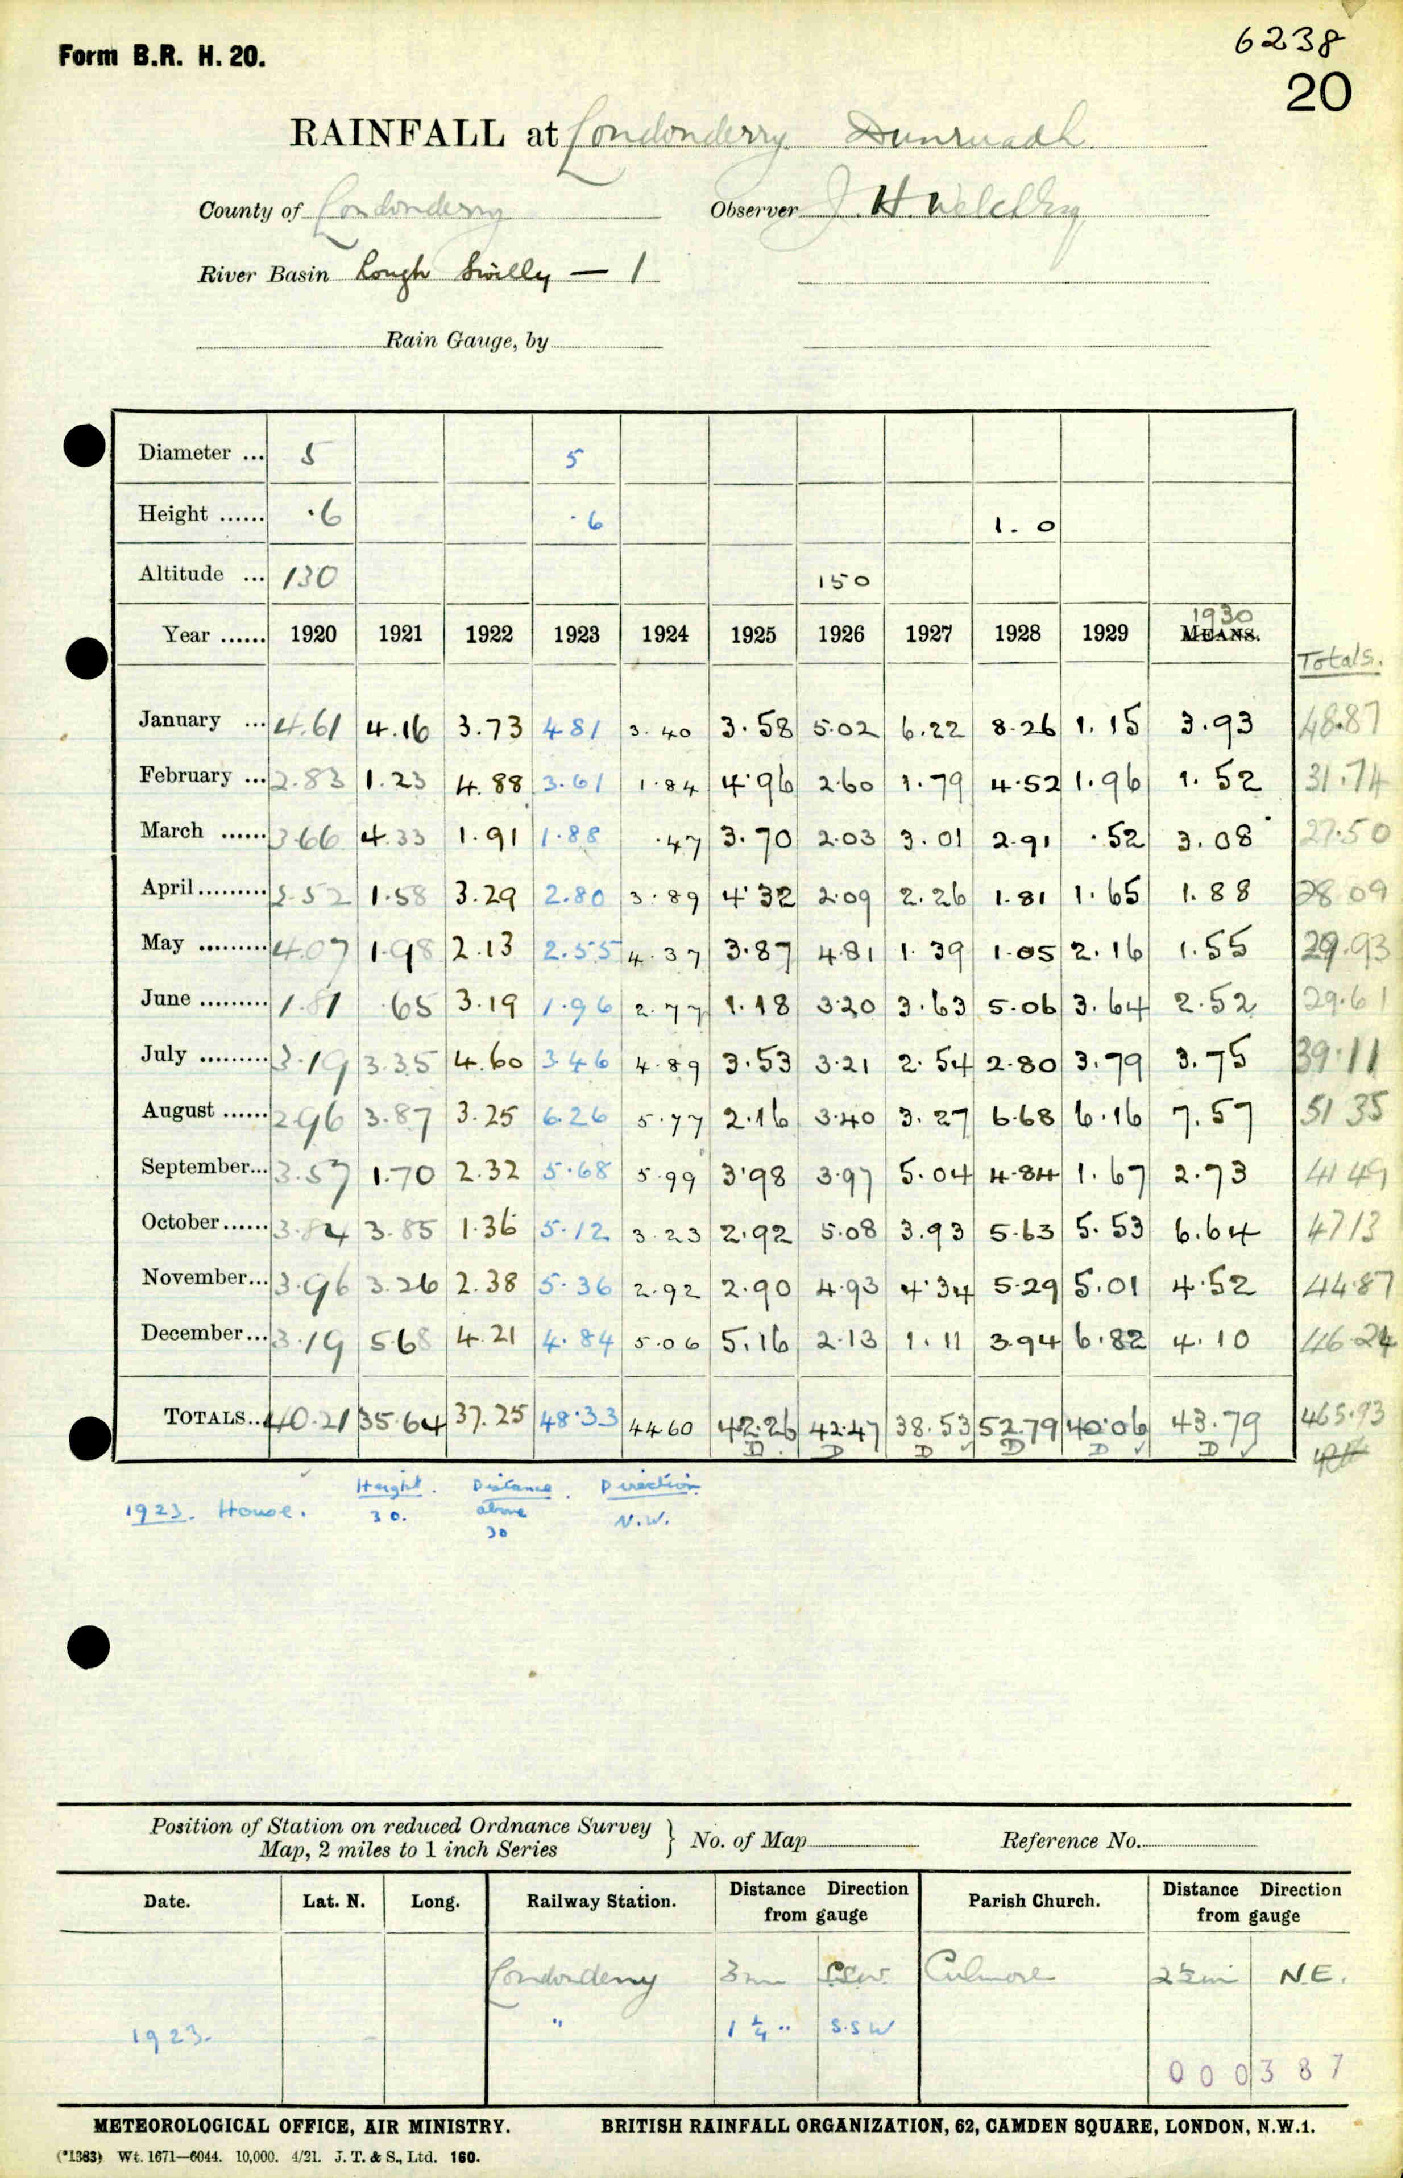 Form B.R. H. 20.
6238
20
RAINFALL at Londonderry Dunruadh
County of Londonderry Observer J. H. Welchby
River Basin Lough Swilly — 1
Rain Gauge, by
Diameter ... 5 5
Height ...... .6 .6 1.0
Altitude ... 130 150
Year ...... 1920 1921 1922 1923 1924 1925 1926 1927 1928 1929 1930 MEANS. Totals.
January ... 4.61 4.16 3.73 4.81 3.40 3.58 5.02 6.22 8.26 1.15 3.93 48.87
February ... 2.83 1.23 4.88 3.61 1.84 4.96 2.60 1.79 4.52 1.96 1.52 31.74
March ...... 3.66 4.33 1.91 1.88 .47 3.70 2.03 3.01 2.91 .52 3.08 27.50
April ......... 2.52 1.58 3.29 2.80 3.89 4.32 2.09 2.26 1.81 1.65 1.88 28.09
May ......... 4.07 1.98 2.13 2.55 4.37 3.87 4.81 1.39 1.05 2.16 1.55 29.93
June ......... 1.81 .65 3.19 1.96 2.77 1.18 3.20 3.63 5.06 3.64 2.52 29.61
July ......... 3.19 3.35 4.60 3.46 4.89 3.53 3.21 2.54 2.80 3.79 3.75 39.11
August ...... 2.96 3.87 3.25 6.26 5.77 2.16 3.40 3.27 6.68 6.16 7.57 51.35
September... 3.57 1.70 2.32 5.68 5.99 3.98 3.97 5.04 4.84 1.67 2.73 41.49
October...... 3.84 3.85 1.36 5.12 3.23 2.92 5.08 3.93 5.63 5.53 6.64 47.13
November... 3.96 3.26 2.38 5.36 2.92 2.90 4.93 4.34 5.29 5.01 4.52 44.87
December... 3.19 5.68 4.21 4.84 5.06 5.16 2.13 1.11 3.94 6.82 4.10 46.24
TOTALS.. 40.21 35.64 37.25 48.33 44.60 42.26 42.47 38.53 52.79 40.06 43.79 465.93
D D D D D D
Height. Distance. Direction
1923. House. 30. above N.W.
30
Position of Station on reduced Ordnance Survey
Map, 2 miles to 1 inch Series } No. of Map Reference No.
Date. Lat. N. Long. Railway Station. Distance Direction from gauge Parish Church. Distance Direction from gauge
Londonderry 3 mi SSW. Culmore 2½ mi N.E.
1923. " 1¼ " S.S W
000387
METEOROLOGICAL OFFICE, AIR MINISTRY. BRITISH RAINFALL ORGANIZATION, 62, CAMDEN SQUARE, LONDON, N.W.1.
(*1383) Wt. 1671—6044. 10,000. 4/21. J. T. & S., Ltd. 160.